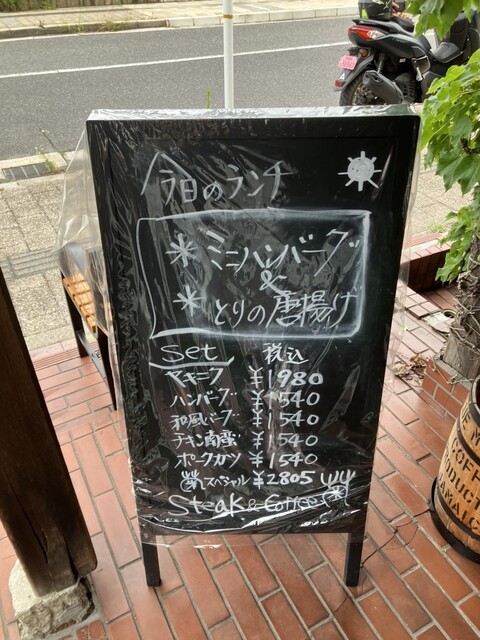 今日のランチ
＊ミニハンバーグ
&
＊とりの唐揚げ
set 税込
マキニク ¥1980
ハンバーグ ¥1540
和風バーグ ¥1540
チキン南蛮 ¥1540
ポークカツ ¥1540
スペシャル ¥2805
Steak & Coffee
COFFEE
PRODUCT
JAMAICA